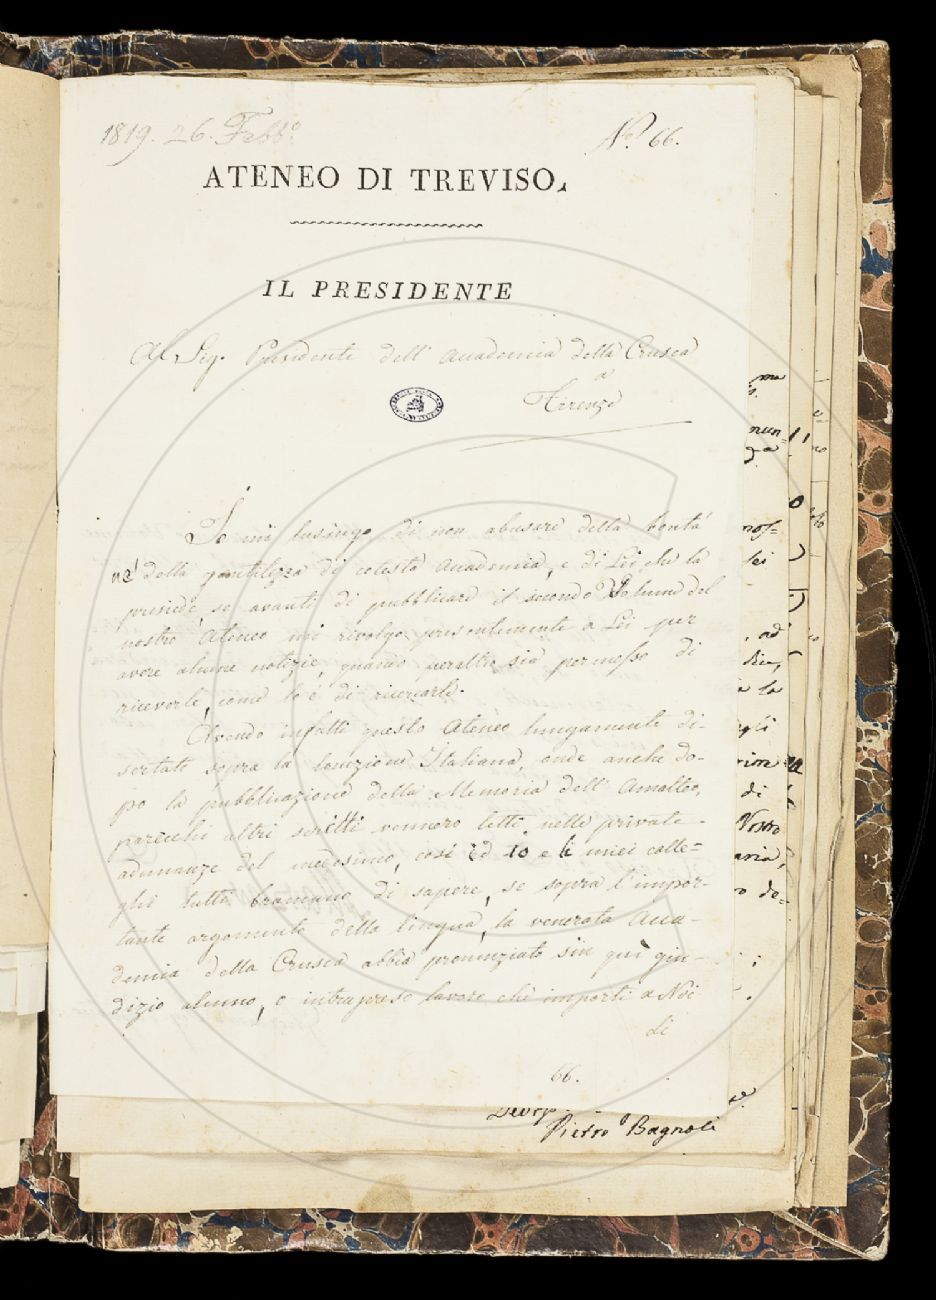 1819. 26. Febb.º
Nº. 66.
ATENEO DI TREVISO.
IL PRESIDENTE
Al Sig. Presidente dell' Accademia della Crusca
a
Firenze
Io mi lusingo di non abusare della bontà
nè della gentilezza di cotesta Accademia, e di Lei che la
presiede, se avanti di pubblicare il secondo Volume del
nostro Ateneo mi rivolgo presentemente a Lei per
avere alcune notizie, quando peraltro sia permesso di
riceverle, come lo è di ricercarle.
Avendo infatti questo Ateneo lungamente di-
sertato sopra la locuzione Italiana, onde anche do-
po la pubblicazione della Memoria dell' Amalteo,
parecchi altri scritti vennero letti nelle private
adunanze del medesimo, così ed io e li miei colle=
ghi tutti bramano di sapere, se sopra l'impor-
tante argomento della lingua, la venerata Acca-
demia della Crusca abbia pronunziato sin quì giu-
dizio alcuno, o intrapreso lavoro che importi a Noi
di
66.
Pietro Bagnoli
mun=
mos=
lei
, ad
la
di
Nostro
aria,
de=